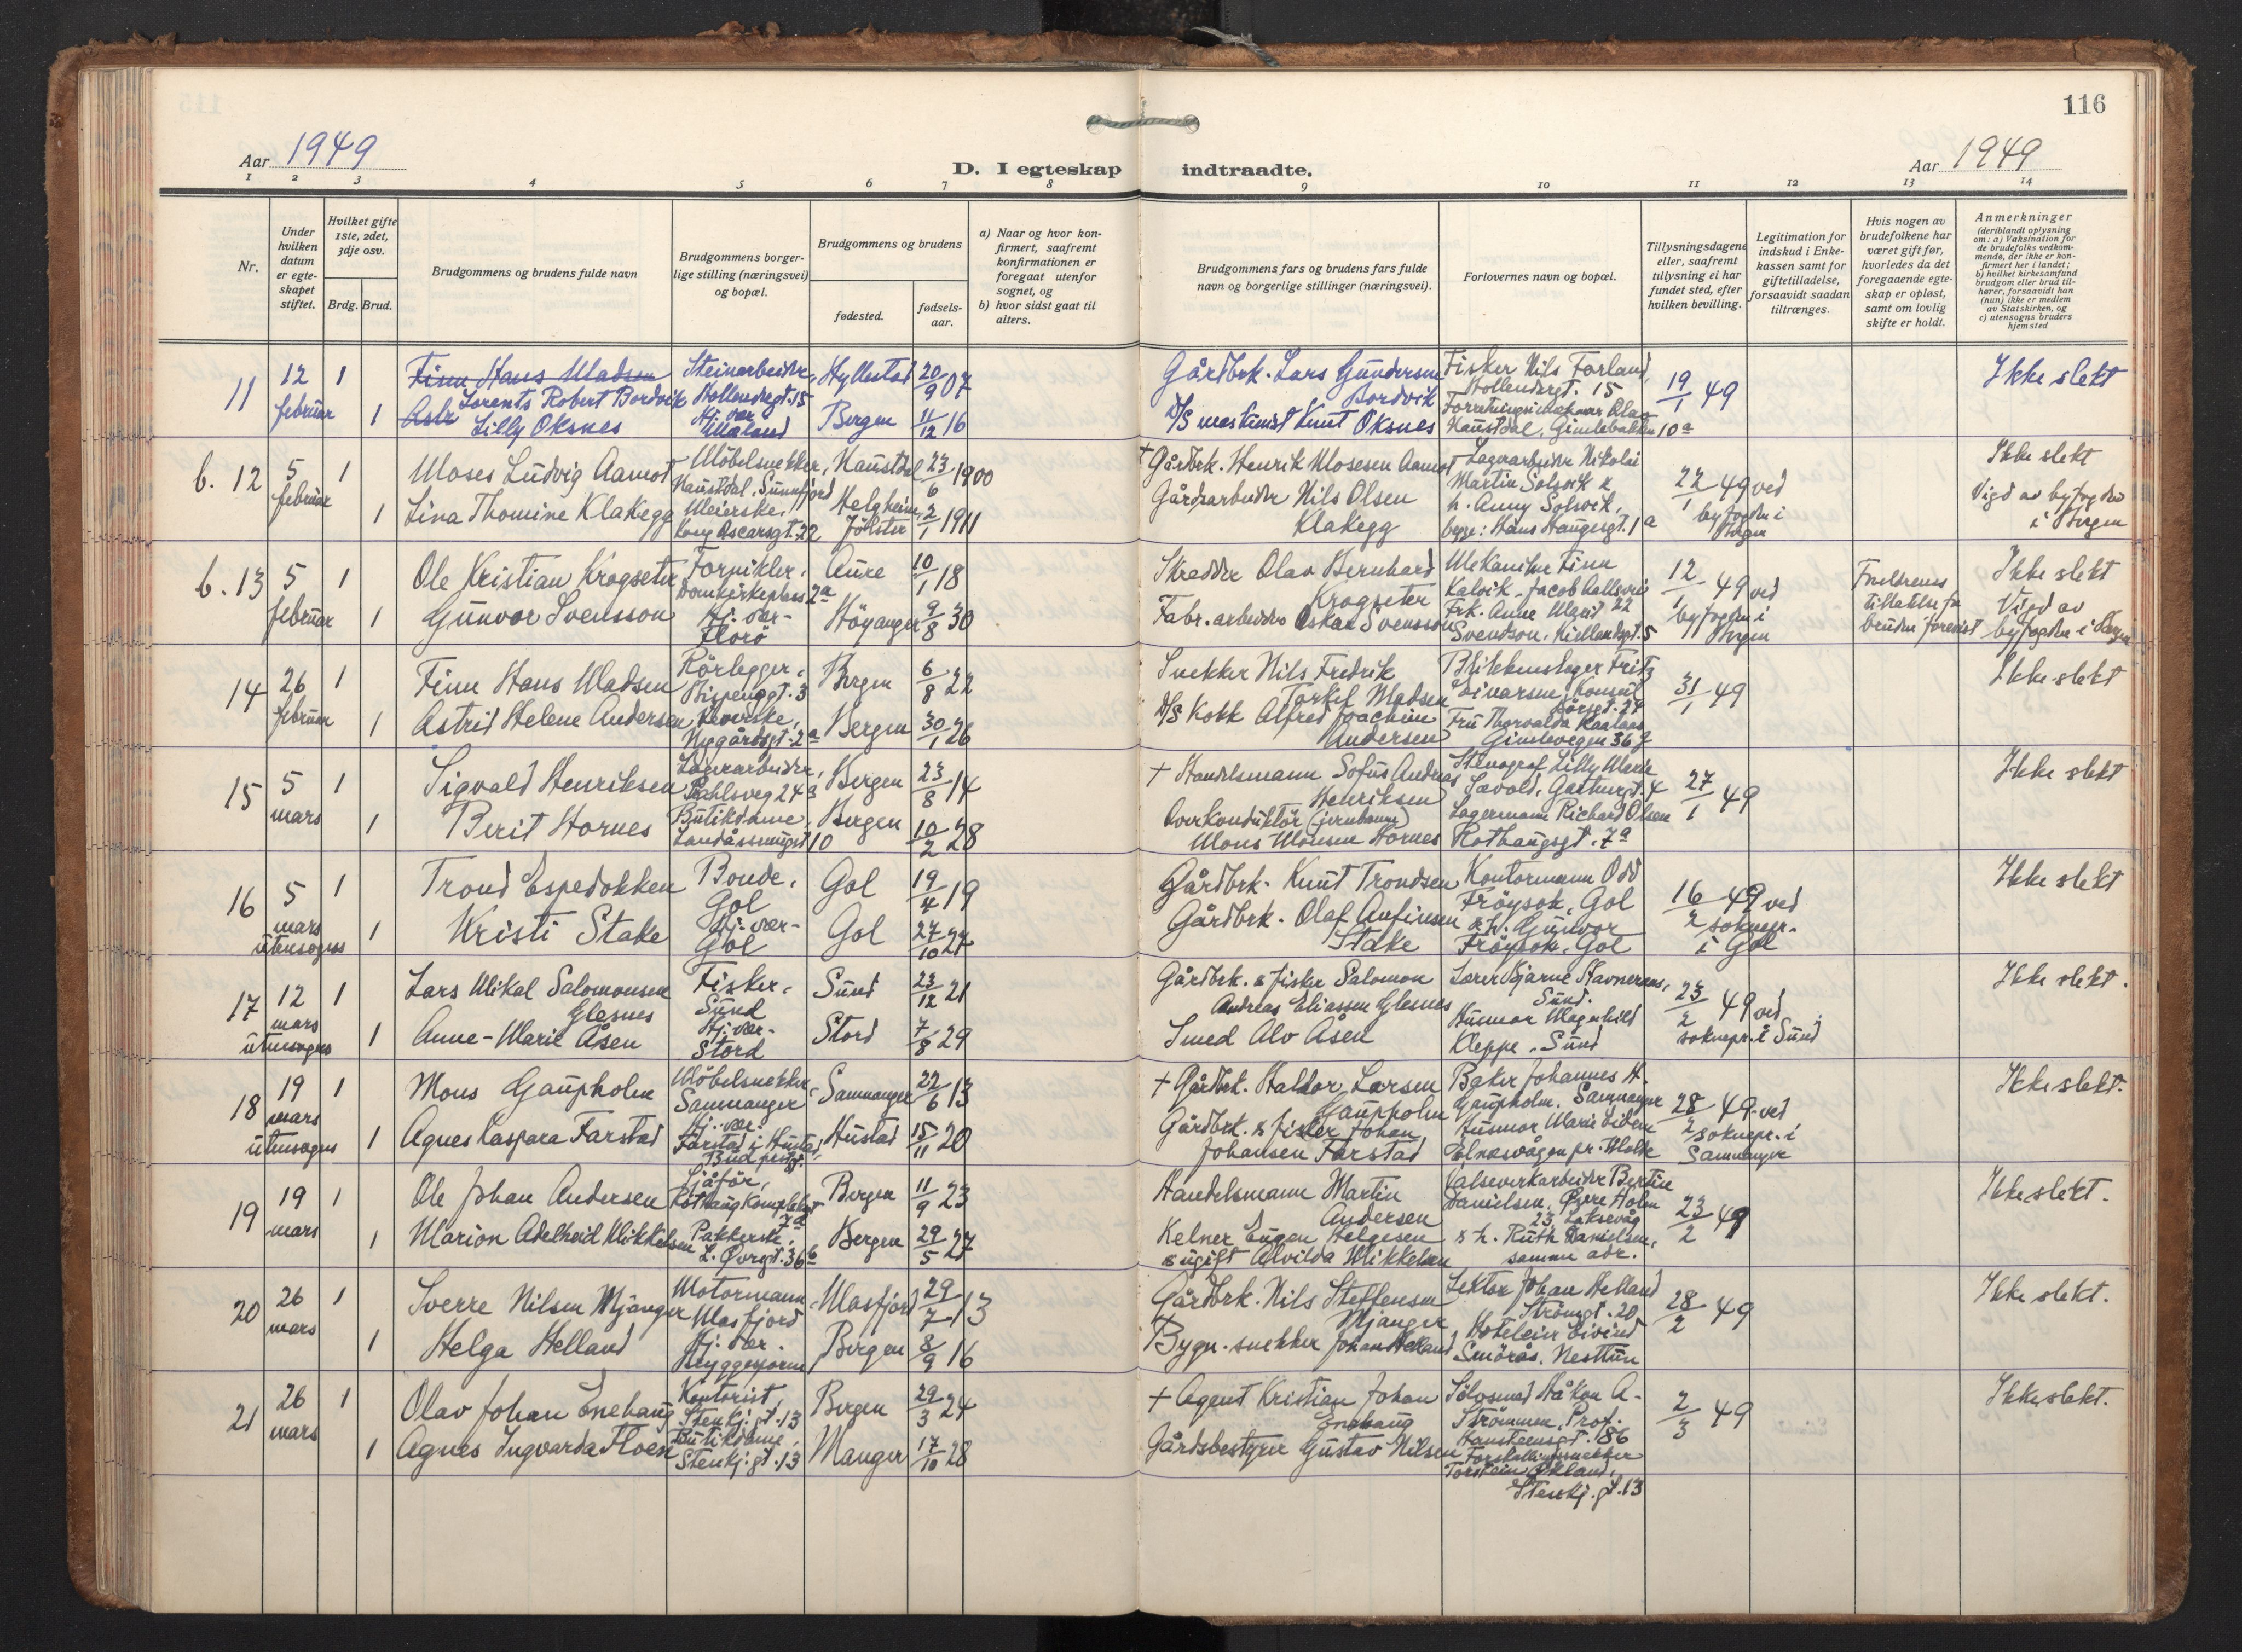 116
Aar 1949
D. I egteskap indtraadte.
Aar 1949
1 2 3 4 5 6 7 8 9 10 11 12 13 14
Nr.
Under hvilken datum er egteskapet stiftet.
Hvilket gifte 1ste, 2det, 3dje osv.
Brdg. Brud.
Brudgommens og brudens fulde navn
Brudgommens borgerlige stilling (næringsvei) og bopæl.
Brudgommens og brudens
fødested.
fødselsaar.
a) Naar og hvor konfirmert, saafremt konfirmationen er foregaat utenfor sognet, og
b) hvor sidst gaat til alters.
Brudgommens fars og brudens fars fulde navn og borgerlige stillinger (næringsvei).
Forlovernes navn og bopæl.
Tillysningsdagene eller, saafremt tillysning ei har fundet sted, efter hvilken bevilling.
Legitimation for indskud i Enkekassen samt for giftetilladelse, forsaavidt saadan tiltrænges.
Hvis nogen av brudefolkene har været gift før, hvorledes da det foregaaende egteskap er opløst, samt om lovlig skifte er holdt.
Anmerkninger (deriblandt oplysning om: a) Vaksination for de brudefolks vedkommende, der ikke er konfirmert her i landet; b) hvilket kirkesamfund brudgom eller brud tilhører, forsaavidt han (hun) ikke er medlem av Statskirken, og c) utensogns bruders hjemsted
11 12 februar 1 Finn Hans Madsen
Lorents Robert Bordvik Steinarbeider, Hollendergt. 15 Hyllestad 20/9 07 Gårdbrk. Lars Gundersen Bordvik Fisker Nils Forland, Hollendergt. 15 19/1 49 Ikke slekt
1 Astr Lilly Oksnes Hj. vær Bergen 11/12 16 D/S maskinist Knut Oksnes Olav Naustdal, Gimlebakken 10a
b. 12 5 februar 1 Moses Ludvig Aamot Möbelsnekker, Naustdal, Sunnfjord Naustdal 23/6 1900 † Gårdbrk. Henrik Mosesen Aamot Lagerarbeider Nikolai Martin Solsvik & 22/1 49 ved byfogden i Bergen Ikke slekt
1 Lina Thomine Klakegg Meierske, Kong Oscarsgt. 22 Helgheim, Jölster 2/1 1911 Gårdsarbeider Nils Olsen Klakegg h. Anny Solsvik, begge: Hans Haugesgt. 1a Vigd av byfogden i Bergen
b. 13 5 februar 1 Ole Kristian Krogseter Forpikler, Domkirkeplass 2a Aure 10/1 18 Skredder Olav Bernhard Krogseter Mekaniker Finn Kalvik, Jacob Kallsvei 22 12/1 49 ved byfogden i Bergen Foreldrenes tillatelse for bruden forevist Ikke slekt
1 Gunvor Svensson Hj. vær - Florö Höyanger 9/8 30 Fabr. arbeider Oskar Svensson Frk. Anne Marit Svendson, Kiellandsgt. 5 Vigd av byfogden i Bergen
14 26 februar 1 Finn Hans Madsen Rörlegger, Bergen 6/8 22 Snekker Nils Fredrik Torkel Madsen Blikkenslager Fritz Konsul Börsgt. 24 31/1 49 Ikke slekt
1 Astrid Helene Andersen Veverske, Nygårdsgt. 2a Bergen 30/1 26 D/S Kokk Alfred Joachim Andersen Fru Thorvalda Gimlevegen
15 5 mars 1 Sigvald Henriksen Lagerarbeider, Bergen 23/8 14 † Handelsmann Sofus Andreas Henriksen Stenograf Lilly Marie Sævold, 27/1 49 Ikke slekt
1 Berit Hornes Butikdame, Bergen 10/2 28 Overkonduktör (jernbanen) Mons Monsen Hornes Lagermann Richard Olsen Rothaugsgt. 7a
16 5 mars utensogns 1 Trond Espedokken Bonde, Gol Gol 19/4 19 Gårdbrk. Knut Trondsen Kontormann Odd Fröysok, Gol 16/2 49 ved soknepr. i Gol Ikke slekt
1 Kristi Stake Hj. vær - Gol Gol 27/10 27 Gårdbrk. Olaf Anfinsen Stake & h. Gunvor Fröysok, Gol
17 12 mars utensogns 1 Lars Mikal Salomonsen Glesnes Fisker, Sund Sund 23/12 21 Gårdbrk. & fisker Salomon Andreas Eliassen Glesnes Lærer Bjarne Sund. 23/2 49 ved soknepr. i Sund Ikke slekt.
1 Anne-Marie Åsen Hj. vær - Stord Stord 7/8 29 Smed Alv Åsen Husmor Magnhild Kleppe, Sund
18 19 mars utensogns 1 Mons Gaupholm Möbelsnekker, Samnanger Samnanger 22/6 13 † Gårdbrk. Haldor Larsen Gaupholm Baker Johannes H. Gaupholm, Samnanger 28/2 49 ved soknepr. i Samnanger Ikke slekt.
1 Agnes Kaspara Farstad Hj. vær - Farstad i Hustad, Hustad 15/11 20 Gårdbrk. & fisker Johan Johansen Farstad Husmor Marie Eidem Elnesvågen pr. Molde
19 19 mars 1 Ole Johan Andersen Sjåför, 7d Bergen 11/9 23 Handelsmann Martin Andersen Valseverkarbeider Bertin Danielsen, Øvre Holm 23, Laksevåg 23/2 49 Ikke slekt.
1 Marion Adelheid Mikkelsen Pakkerske, L. Øvregt. 36b Bergen 29/5 27 Kelner Eugen Helgesen & ugift Alvilda Mikkelsen & h. Ruth Danielsen, samme adr.
20 26 mars 1 Sverre Nilsen Mjanger Motormann, Masfjord Masfjord 29/7 13 Gårdbrk. Nils Steffensen Mjanger Lektor Johan Helland Strömgt. 20 28/2 49 Ikke slekt.
1 Helga Helland Hj. vær. Bergen 8/9 16 † Bygn. snekker Johan Helland Hoteleier Eivind Smörås, Nesttun
21 26 mars 1 Olav Johan Enehaug Kontorist, Stenkj. gt. 13 Bergen 29/3 24 † Agent Kristian Johan Enehaug Sölvsmed Håkon A. Strömmen, Prof. Hansteensgt. 2/3 49 Ikke slekt.
1 Agnes Ingvarda Floen Butikdame, Stenkj. gt. 13 Manger 17/10 28 Gårdsbestyrer Gustav Nilsen Torstein Økland, Stenkj. gt. 13